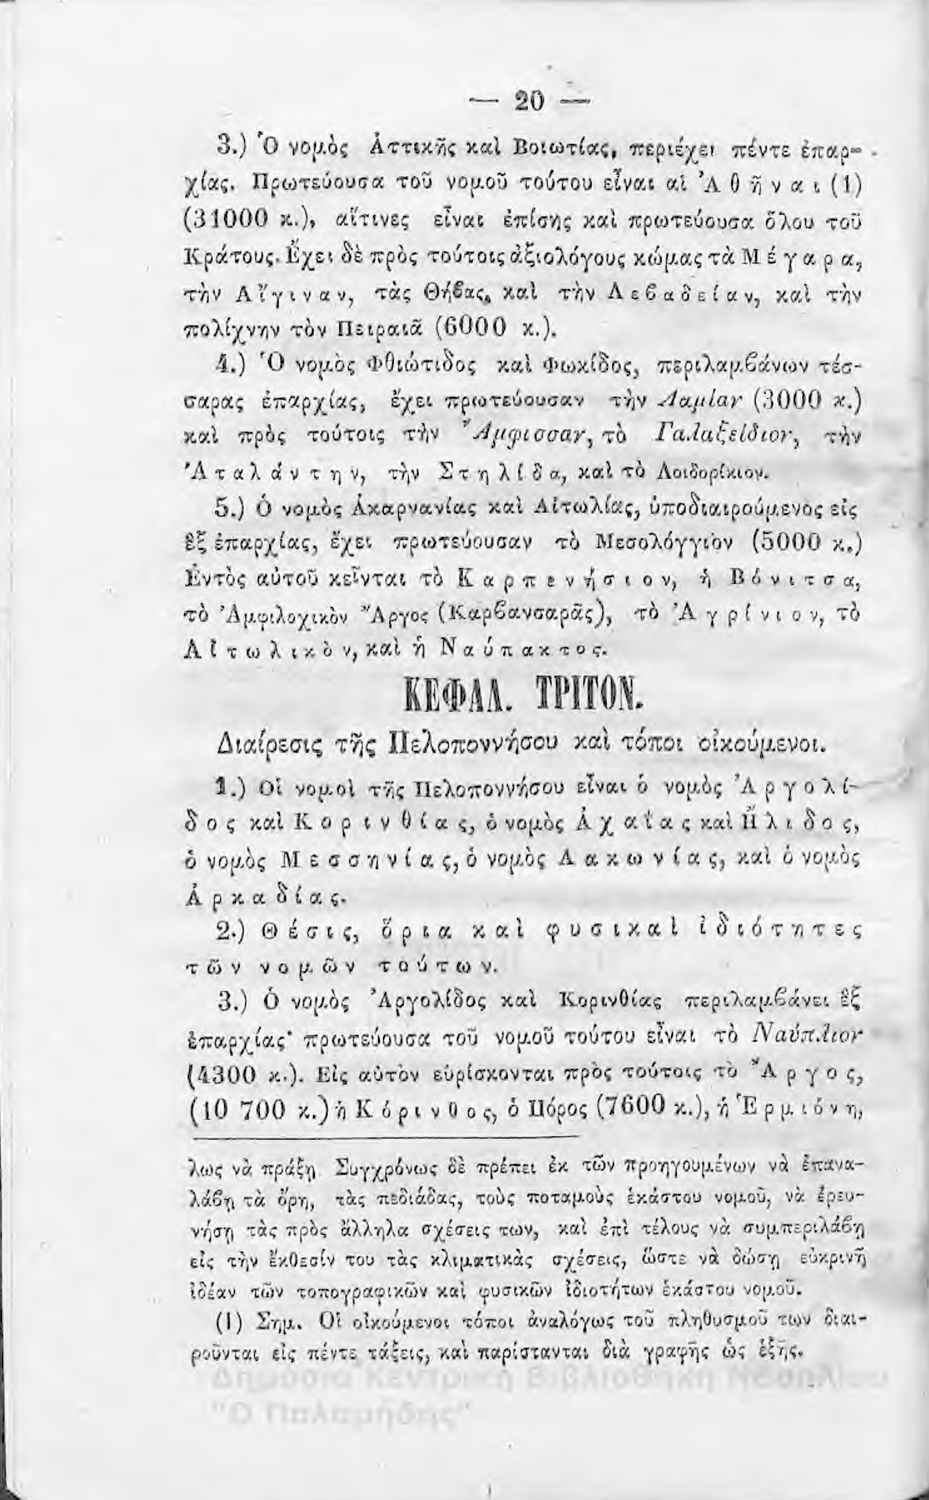 — 20 —
3.) Ὁ νομὸς Ἀττικῆς καὶ Βοιωτίας, περιέχει πέντε ἐπαρ-
χίας. Πρωτεύουσα τοῦ νομοῦ τούτου εἶναι αἱ Ἀθῆναι (1)
(31000 κ.), αἵτινες εἶναι ἐπίσης καὶ πρωτεύουσα ὅλου τοῦ
Κράτους. Ἔχει δὲ πρὸς τούτοις ἀξιολόγους κώμας τὰ Μέγαρα,
τὴν Αἴγιναν, τὰς Θήβας, καὶ τὴν Λεβαδείαν, καὶ τὴν
πολίχνην τὸν Πειραιᾶ (6000 κ.).
4.) Ὁ νομὸς Φθιώτιδος καὶ Φωκίδος, περιλαμβάνων τέσ-
σαρας ἐπαρχίας, ἔχει πρωτεύουσαν τὴν Λαμίαν (3000 κ.)
καὶ πρὸς τούτοις τὴν Ἄμφισσαν, τὸ Γαλαξείδιον, τὴν
Ἀταλάντην, τὴν Στηλίδα, καὶ τὸ Λοιδορίκιον.
5.) Ὁ νομὸς Ἀκαρνανίας καὶ Αἰτωλίας, ὑποδιαιρούμενος εἰς
ἓξ ἐπαρχίας, ἔχει πρωτεύουσαν τὸ Μεσολόγγιον (5000 κ.)
Ἐντὸς αὐτοῦ κεῖνται τὸ Καρπενήσιον, ἡ Βόνιτσα,
τὸ Ἀμφιλοχικὸν Ἄργος (Καρβανσαρᾶς), τὸ Ἀγρίνιον, τὸ
Αἰτωλικὸν, καὶ ἡ Ναύπακτος.
ΚΕΦΑΛ. ΤΡΙΤΟΝ.
Διαίρεσις τῆς Πελοποννήσου καὶ τόποι οἰκούμενοι.
1.) Οἱ νομοὶ τῆς Πελοποννήσου εἶναι ὁ νομὸς Ἀργολί-
δος καὶ Κορινθίας, ὁ νομὸς Ἀχαΐας καὶ Ἤλιδος,
ὁ νομὸς Μεσσηνίας, ὁ νομὸς Λακωνίας, καὶ ὁ νομὸς
Ἀρκαδίας.
2.) Θέσις, ὅρια καὶ φυσικαὶ ἰδιότητες
τῶν νομῶν τούτων.
3.) Ὁ νομὸς Ἀργολίδος καὶ Κορινθίας περιλαμβάνει ἓξ
ἐπαρχίας· πρωτεύουσα τοῦ νομοῦ τούτου εἶναι τὸ Ναύπλιον
(4300 κ.). Εἰς αὐτὸν εὑρίσκονται πρὸς τούτοις τὸ Ἄργος,
(10 700 κ.) ἡ Κόρινθος, ὁ Πόρος (7600 κ.), ἡ Ἑρμιόνη,
λως νὰ πράξῃ Συγχρόνως δὲ πρέπει ἐκ τῶν προηγουμένων νὰ ἐπανα-
λάβῃ τὰ ὄρη, τὰς πεδιάδας, τοὺς ποταμοὺς ἑκάστου νομοῦ, νὰ ἐρευ-
νήσῃ τὰς πρὸς ἄλληλα σχέσεις των, καὶ ἐπὶ τέλους νὰ συμπεριλάβῃ
εἰς τὴν ἔκθεσίν του τὰς κλιματικὰς σχέσεις, ὥστε νὰ δώσῃ εὐκρινῆ
ἰδέαν τῶν τοπογραφικῶν καὶ φυσικῶν ἰδιοτήτων ἑκάστου νομοῦ.
(1) Σημ. Οἱ οἰκούμενοι τόποι ἀναλόγως τοῦ πληθυσμοῦ των διαι-
ροῦνται εἰς πέντε τάξεις, καὶ παρίστανται διὰ γραφῆς ὡς ἑξῆς.
Δημόσια Κεντρική Βιβλιοθήκη Ναυπλίου
"Ο Παλαμήδης"